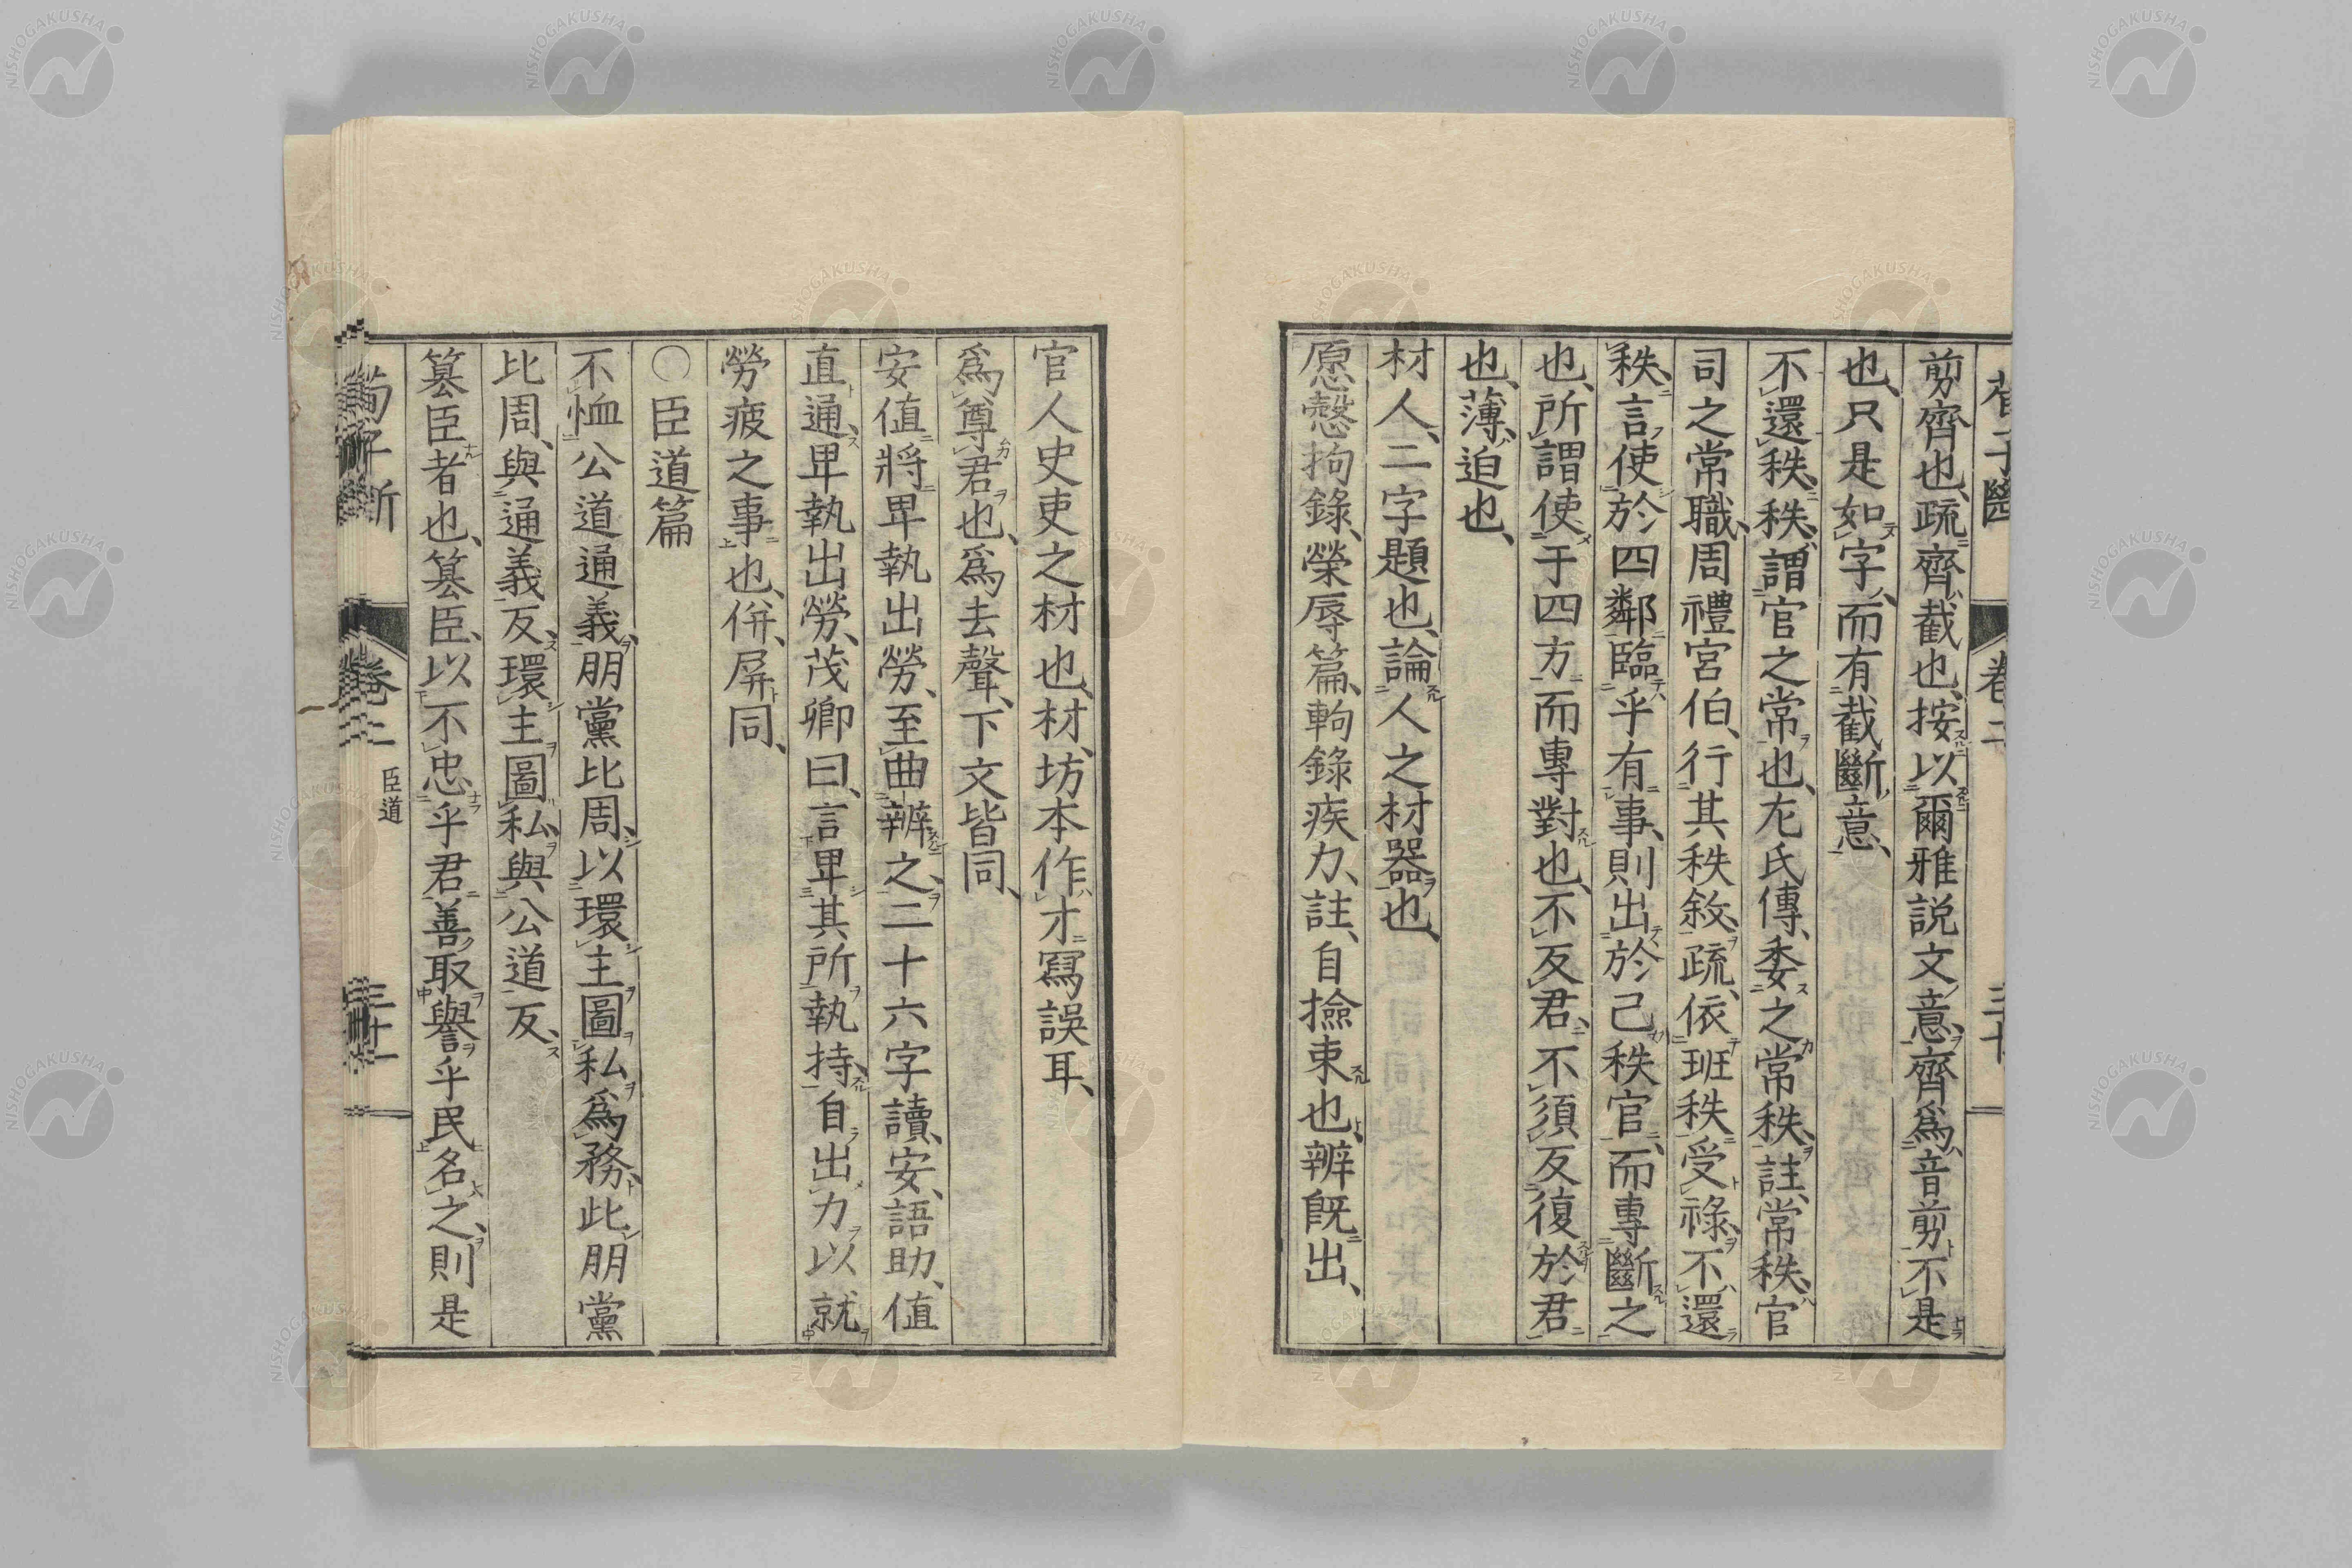 剪齊也、疏齊、截也、按以爾雅説文意、齊爲音剪不是
也、只是如字、而有截斷意、
不還秩、秩謂官之常也、左氏傳、委之常秩、註、常秩、官
司之常職、周禮宮伯、行其秩敘、疏、依班秩受祿、不還
秩、言使於四鄰、臨乎有事、則出於己秩官、而專斷之
也、所謂使于四方、而專對也、不反君、不須反復於君
也、薄、迫也、
材人、二字題也、論人之材器也、
愿愨拘錄、榮辱篇、軥錄疾力、註、自撿束也、辨旣出、
荀子斷 卷二 三十
官人史吏之材也、材、坊本作才、寫誤耳、
爲尊君也、爲去聲、下文皆同、
安値將卑埶出勞、至曲辨之、二十六字讀、安、語助、値
直通、卑埶出勞、茂卿曰、言卑其所執持、自出力以就
勞疲之事也、併、屏同、
〇臣道篇
不恤公道通義、朋黨比周、以環主圖私爲務、此朋黨
比周、與通義反、環主圖私、與公道反、
簒臣者也、簒臣、以不忠乎君、善取譽乎民名之、則是
荀子斷 卷二 臣道 三十一
NISHOGAKUSHA